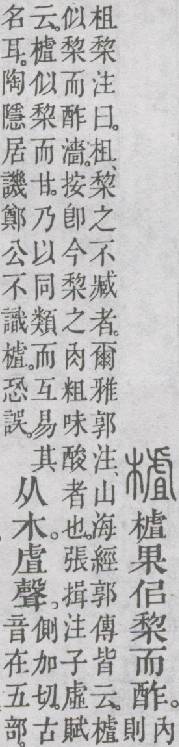 樝 樝果佀棃而酢。內
則
柤棃注曰。柤、棃之不臧者。爾雅郭注、山海經郭傳皆云。樝
似棃而酢濇。按卽今棃之肉粗味酸者也。張揖注子虛賦
云。樝似棃而甘。乃以同類而互易其
名耳。陶隱居譏鄭公不識樝。恐誤。
从木。虘聲。
側加切。古
音在五部。